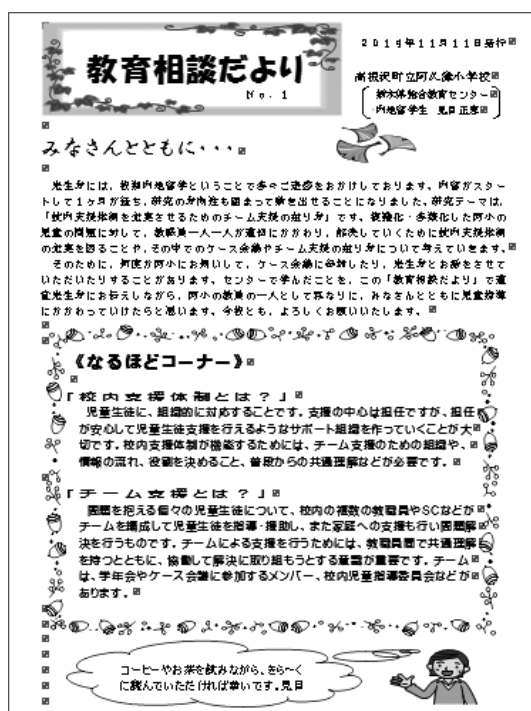 教育相談だより
No. 1
2014年11月11日発行
高根沢町立阿久津小学校
栃木県総合教育センター
内地留学生 見目正恵
みなさんとともに・・・
先生方には、校務内地留学ということで多々ご迷惑をおかけしております。内留がスター
トして1ヶ月が経ち、研究の方向性も固まって動き出せることになりました。研究テーマは、
「校内支援体制を充実させるためのチーム支援の在り方」です。複雑化・多様化した阿小の
児童の問題に対して、教職員一人一人が適切にかかわり、解決していくために校内支援体制
の充実を図ることや、その中でのケース会議やチーム支援の在り方について考えていきます。
そのために、何度か阿小にお伺いして、ケース会議に参加したり、先生方とお話をさせて
いただいたりすることがあります。センターで学んだことを、この「教育相談だより」で適
宜先生方にお伝えしながら、阿小の教員の一人として私なりに、みなさんとともに児童指導
にかかわっていけたらと思います。今後とも、よろしくお願いいたします。
《なるほどコーナー》
「校内支援体制とは？」
児童生徒に、組織的に対応することです。支援の中心は担任ですが、担任
が安心して児童生徒支援を行えるようなサポート組織を作っていくことが大
切です。校内支援体制が機能するためには、チーム支援のための組織や、
情報の流れ、役割を決めること、普段からの共通理解などが必要です。
「チーム支援とは？」
問題を抱える個々の児童生徒について、校内の複数の教職員やSCなどが
チームを編成して児童生徒を指導・援助し、また家庭への支援も行い問題解
決を行うものです。チームによる支援を行うためには、教職員間で共通理解
を持つとともに、協働して解決に取り組もうとする意識が重要です。チーム
は、学年会やケース会議に参加するメンバー、校内児童指導委員会などが
あります。
コーヒーやお茶を飲みながら、きら～く
に読んでいただければ幸いです。見目